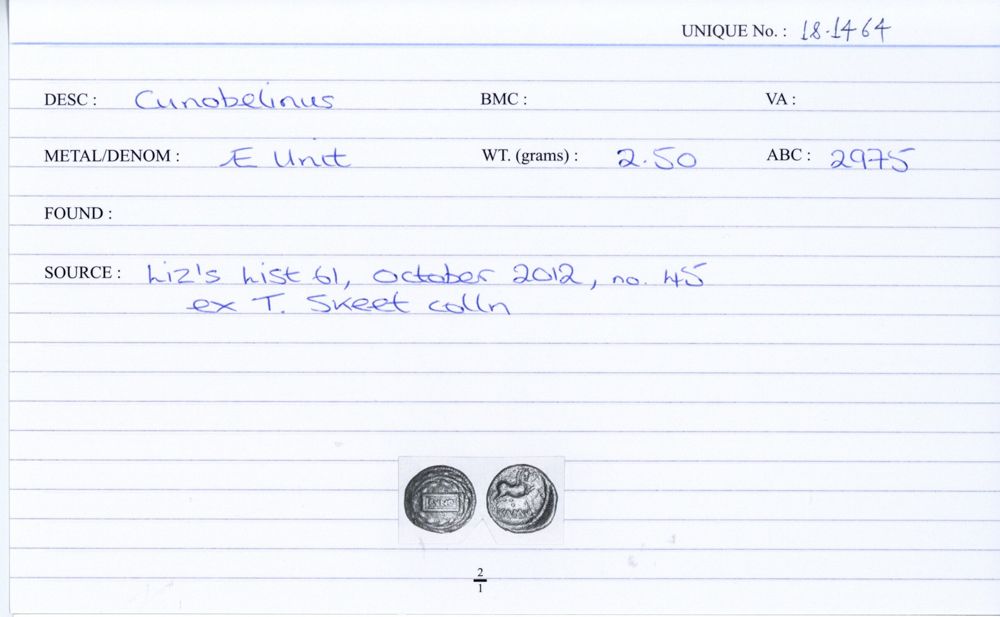 UNIQUE No. : 18.1464
DESC : Cunobelinus BMC : VA :
METAL/DENOM : Æ Unit WT. (grams) : 2.50 ABC : 2975
FOUND :
SOURCE : Liz's List 61, October 2012, no. 45
ex T. Skeet colln
2
1